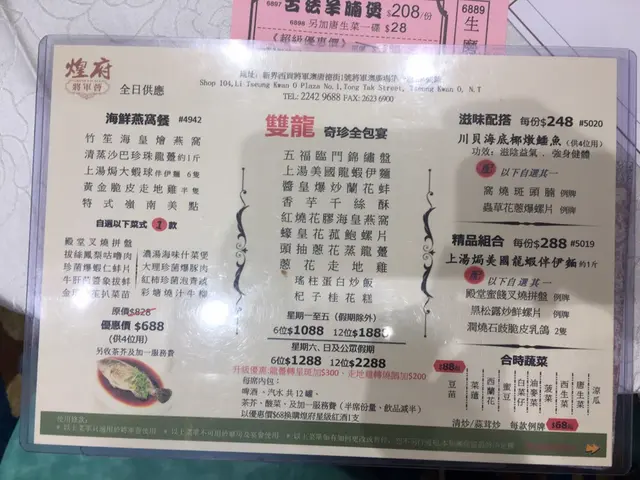 6897 古法羊腩煲 $208/份
6898 另加唐生菜一碟 $28
《超級優惠價》
6889
生
煌府
將軍澳
全日供應
Shop 104, Li Tseung Kwan O Plaza No.1, Tong Tak Street, Tseung Kwan O, N.T
TEL: 2242 9688 FAX: 2623 6900
海鮮燕窩餐 #4942
竹笙海皇燴燕窩
清蒸沙巴珍珠龍躉 約1斤
上湯焗大蝦球 伴伊麵 6隻
黃金脆皮走地雞 半隻
特式嶺南美點
自選以下菜式 1 款
殿堂叉燒拼盤
拔絲鳳梨咕嚕肉
珍菌爆蝦仁蚌片
濃湯海味什菜煲
大理珍菌爆豚肉
紅柿珍菌泡青
彩塘燒汁牛柳
原價 $828
優惠價 $688
(供4位用)
另收茶芥及加一服務費
雙龍 奇珍全包宴
五福臨門錦繡盤
上湯美國龍蝦伊麵
醬皇爆炒蘭花蚌
香芋千絲酥
紅燒花膠海皇燕窩
蠔皇花菰鮑螺片
頭抽蔥花蒸龍躉
蔥花走地雞
瑤柱蛋白炒飯
杞子桂花糕
星期一至五 (假期除外)
6位 $1088 12位 $1888
星期六、日及公眾假期
6位 $1288 12位 $2288
升級優惠:龍躉轉星斑加$300、走地雞轉燒鵝加$200
每席內包:
啤酒、汽水共12罐、
茶芥、酸菜、及加一服務費 (半席份量、飲品減半)
以優惠價$68換購煌府星級紅酒1支
滋味配搭 每份$248 #5020
川貝海底椰燉鱷魚 (供4位用)
功效: 滋陰益氣、強身健體
配 以下自選其一
窩燒斑頭腩 例牌
蟲草花蔥爆螺片 例牌
精品組合 每份$288 #5019
上湯焗美國龍蝦伴伊麵 約1斤
配 以下自選其一
殿堂蜜餞叉燒拼盤 例牌
黑松露炒鮮螺片 例牌
潤燒石鼓脆皮乳鴿 2隻
合時蔬菜
$88/份
豆苗
菜薳
西蘭花
蜜豆
白菜仔
油麥菜
菠菜
西生菜
唐生菜
涼瓜
清炒/蒜茸炒 每款例牌 $68/份
使用條款: